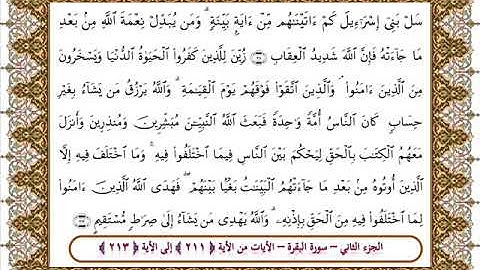 سَلْ بَنِىٓ إِسْرَٰٓءِيلَ كَمْ ءَاتَيْنَٰهُم مِّنْ ءَايَةٍۭ بَيِّنَةٍ ۗ وَمَن يُبَدِّلْ نِعْمَةَ ٱللَّهِ مِنۢ بَعْدِ
مَا جَآءَتْهُ فَإِنَّ ٱللَّهَ شَدِيدُ ٱلْعِقَابِ ﴿٢١١﴾ زُيِّنَ لِلَّذِينَ كَفَرُوا۟ ٱلْحَيَوٰةُ ٱلدُّنْيَا وَيَسْخَرُونَ
مِنَ ٱلَّذِينَ ءَامَنُوا۟ ۘ وَٱلَّذِينَ ٱتَّقَوْا۟ فَوْقَهُمْ يَوْمَ ٱلْقِيَٰمَةِ ۗ وَٱللَّهُ يَرْزُقُ مَن يَشَآءُ بِغَيْرِ
حِسَابٍ كَانَ ٱلنَّاسُ أُمَّةً وَٰحِدَةً فَبَعَثَ ٱللَّهُ ٱلنَّبِيِّۦنَ مُبَشِّرِينَ وَمُنذِرِينَ وَأَنزَلَ
مَعَهُمُ ٱلْكِتَٰبَ بِٱلْحَقِّ لِيَحْكُمَ بَيْنَ ٱلنَّاسِ فِيمَا ٱخْتَلَفُوا۟ فِيهِ ۚ وَمَا ٱخْتَلَفَ فِيهِ إِلَّا
ٱلَّذِينَ أُوتُوهُ مِنۢ بَعْدِ مَا جَآءَتْهُمُ ٱلْبَيِّنَٰتُ بَغْيًۢا بَيْنَهُمْ ۖ فَهَدَى ٱللَّهُ ٱلَّذِينَ ءَامَنُوا۟
لِمَا ٱخْتَلَفُوا۟ فِيهِ مِنَ ٱلْحَقِّ بِإِذْنِهِۦ ۗ وَٱللَّهُ يَهْدِى مَن يَشَآءُ إِلَىٰ صِرَٰطٍ مُّسْتَقِيمٍ ﴿٢١٣﴾
الجزء الثاني – سورة البقرة – الآيات من الآية ﴿٢١١﴾ إلى الآية ﴿٢١٣﴾